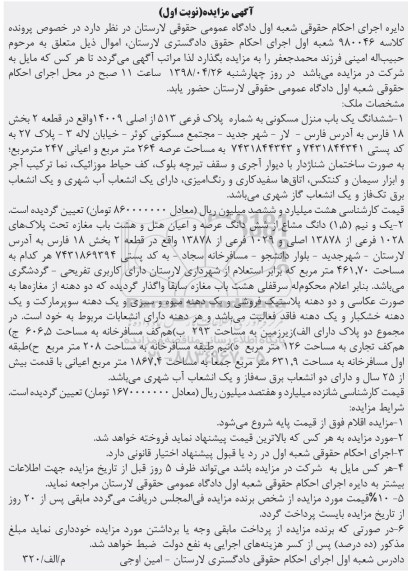 آگهی مزایده(نوبت اول)
دایره اجرای احکام حقوقی شعبه اول دادگاه عمومی حقوقی لارستان در نظر دارد در خصوص پرونده
کلاسه ۹۸۰۰۴۶ شعبه اول اجرای احکام حقوق دادگستری لارستان، اموال ذیل متعلق به مرحوم
حبیب‌اله امینی فرزند محمدجعفر را به مزایده بگذارد لذا مراتب آگهی می‌گردد تا هر کس که مایل به
شرکت در مزایده می‌باشد در روز چهارشنبه ۱۳۹۸/۰۴/۲۶ ساعت ۱۱ صبح در محل اجرای احکام
حقوقی شعبه اول دادگاه عمومی حقوقی لارستان حضور یابد.
مشخصات ملک:
۱-ششدانگ یک باب منزل مسکونی به شماره پلاک فرعی ۵۱۳ از اصلی ۱۴۰۰۹واقع در قطعه ۲ بخش
۱۸ فارس به آدرس فارس - لار - شهر جدید - مجتمع مسکونی کوثر - خیابان لاله ۳ - پلاک ۲۷ به
کد پستی ۷۴۳۱۸۴۴۳۴۱ و ۷۴۳۱۸۴۴۳۴۳ به مساحت عرصه ۲۶۴ متر مربع و اعیانی ۲۴۷ مترمربع؛
به صورت ساختمان شناژدار با دیوار آجری و سقف تیرچه بلوک، کف حیاط موزائیک، نما ترکیب آجر
و ابزار سیمان و کنتکس، اتاق‌ها سفیدکاری و رنگ‌آمیزی، دارای یک انشعاب آب شهری و یک انشعاب
برق تک‌فاز و یک انشعاب گاز شهری می‌باشد.
قیمت کارشناسی هشت میلیارد و ششصد میلیون ریال (معادل ۸۶۰۰۰۰۰۰۰ تومان) تعیین گردیده است.
۲-یک و نیم (۱,۵) دانگ مشاع از شش دانگ عرصه و اعیان هتل و هشت باب مغازه تحت پلاک‌های
۱۰۲۸ فرعی از ۱۳۸۷۸ اصلی و ۱۰۲۹ فرعی از ۱۳۸۷۸ واقع در قطعه ۲ بخش ۱۸ فارس به آدرس
لارستان - شهرجدید - بلوار دانشجو - مسافرخانه سجاد - به کد پستی ۷۴۳۱۸۶۹۳۹۴ هر کدام به
مساحت ۴۶۱,۷۰ متر مربع که برابر استعلام از شهرداری لارستان دارای کاربری تفریحی - گردشگری
می‌باشد. بنابر اعلام محکوم‌له سرقفلی هشت باب مغازه سابقا واگذار گردیده که دو دهنه از مغازه‌ها به
صورت عکاسی و دو دهنه پلاستیک فروشی و یک دهنه میوه و سبزی و یک دهنه سوپرمارکت و یک
دهنه خشکبار و یک دهنه فاقد فعالیت می‌باشد و هر دهنه دارای انشعابات مربوط به خود است. در
مجموع دو پلاک دارای الف)زیرزمین به مساحت ۲۹۳ ب)هم‌کف مسافرخانه به مساحت ۶۰۶,۵ ج)
هم‌کف تجاری به مساحت ۱۲۶ متر مربع د)نیم طبقه مسافرخانه به مساحت ۲۰۸ متر مربع ح)طبقه
اول مسافرخانه به مساحت ۶۳۱,۹ متر مربع جمعا به مساحت ۱۸۶۷,۴ متر مربع اعیانی با قدمت بیش
از ۲۵ سال و دارای دو انشعاب برق سه‌فاز و یک انشعاب آب شهری می‌باشد.
قیمت کارشناسی شانزده میلیارد و هفتصد میلیون ریال (معادل ۱۶۷۰۰۰۰۰۰۰ تومان) تعیین گردیده است.
شرایط مزایده:
۱-مزایده اقلام فوق از قیمت پایه شروع می‌شود.
۲-مورد مزایده به هر کس که بالاترین قیمت پیشنهاد نماید فروخته خواهد شد.
۳-اجرای احکام حقوقی شعبه اول در رد یا قبول پیشنهاد اختیار قانونی دارد.
۴-هر کس مایل به شرکت در مزایده باشد می‌تواند ظرف ۵ روز قبل از تاریخ مزایده جهت اطلاعات
بیشتر به دایره اجرای احکام حقوقی شعبه اول دادگاه عمومی حقوقی لارستان مراجعه نماید.
۵- ۱۰%قیمت مورد مزایده از شخص برنده مزایده فی‌المجلس دریافت می‌گردد مابقی پس از ۲۰ روز
از تاریخ مزایده بایست پرداخت گردد.
۶-در صورتی که برنده مزایده از پرداخت مابقی وجه یا برداشتن مورد مزایده خودداری نماید مبلغ
مذکور (ده درصد) پس از کسر هزینه‌های اجرایی به نفع دولت ضبط خواهد شد.
دادرس شعبه اول اجرای احکام حقوقی دادگستری لارستان - امین اوجی م/الف/۳۲۰